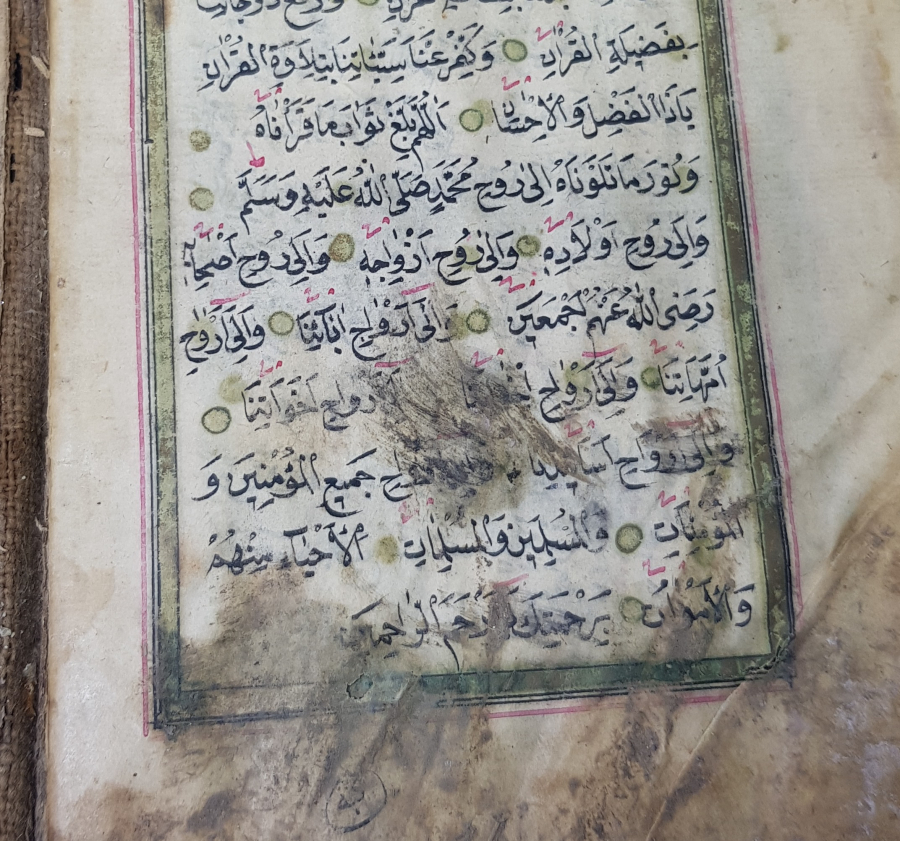 بِفَضِيلَةِ الْقُرْاٰنِ وَكَفِّرْ عَنَّا سَيِّئَاتِنَا بِتِلَاوَةِ الْقُرْاٰنِ
يَاذَا الْفَضْلِ وَالْاِحْسَانِ اَللّٰهُمَّ بَلِّغْ ثَوَابَ مَا قَرَأْنَاهُ
وَنُورَ مَا تَلَوْنَاهُ اِلٰى رُوحِ مُحَمَّدٍ صَلَّى اللّٰهُ عَلَيْهِ وَسَلَّمَ
وَاِلٰى رُوحِ اَوْلَادِهِ وَاِلٰى رُوحِ اَزْوَاجِهِ وَاِلٰى رُوحِ اَصْحَابِهِ
رَضِىَ اللّٰهُ عَنْهُمْ اَجْمَعِينَ وَاِلٰى اَرْوَاحِ اٰبَآئِنَا وَاِلٰى اَرْوَاحِ
اُمَّهَاتِنَا وَاِلٰى اَرْوَاحِ اَرْوَاحِ اَخَوَاتِنَا
وَاِلٰى اَرْوَاحِ جَمِيعِ الْمُؤْمِنِينَ وَ
الْمُؤْمِنَاتِ وَالْمُسْلِمِينَ وَالْمُسْلِمَاتِ اَلْاَحْيَآءِ مِنْهُمْ
وَالْاَمْوَاتِ بِرَحْمَتِكَ يَا اَرْحَمَ الرَّاحِمِينَ